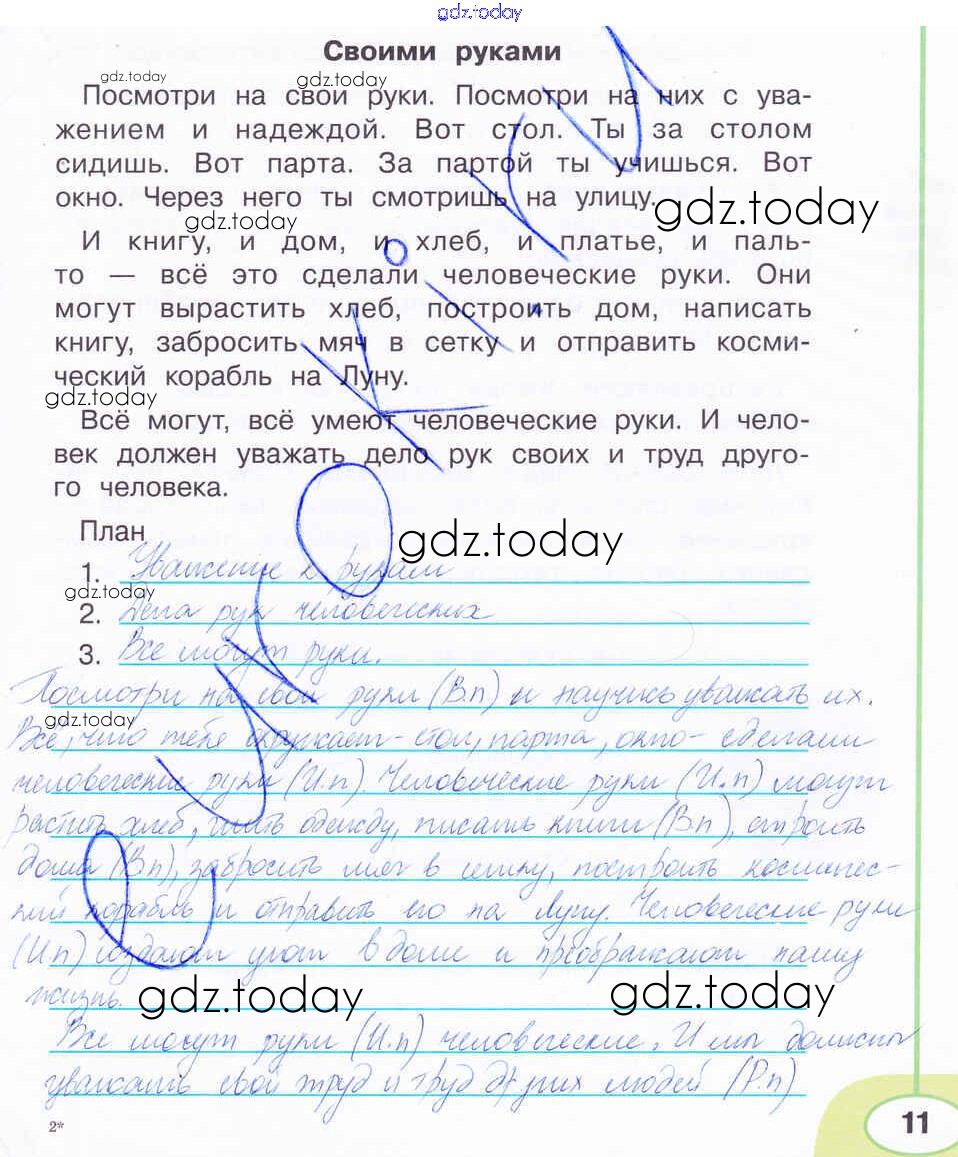 gdz.today
Своими руками
gdz.today
gdz.today
Посмотри на свои руки. Посмотри на них с ува-
жением и надеждой. Вот стол. Ты за столом
сидишь. Вот парта. За партой ты учишься. Вот
окно. Через него ты смотришь на улицу.
gdz.today
gdz.today
И книгу, и дом, и хлеб, и платье, и паль-
то — всё это сделали человеческие руки. Они
могут вырастить хлеб, построить дом, написать
книгу, забросить мяч в сетку и отправить косми-
ческий корабль на Луну.
gdz.today
Всё могут, всё умеют человеческие руки. И чело-
век должен уважать дело рук своих и труд друго-
го человека.
План
gdz.today
1. Уважение к рукам
gdz.today
2. Дела рук человеческих
3. Все могут руки.
Посмотри на свои руки (В.п) и научись уважать их.
gdz.today
Всё, что тебя окружает - стол, парта, окно - сделали
человеческие руки (И.п). Человеческие руки (И.п) могут
растить хлеб, шить одежду, писать книги (В.п), строить
дома (В.п), забросить мяч в сетку, построить космичес-
кий корабль и отправить его на Луну. Человеческие руки
(И.п) создают уют в доме и преображают нашу
жизнь.
gdz.today
gdz.today
Все могут руки (И.п) человеческие. И мы должны
уважать свой труд и труд других людей (Р.п)
2*
11